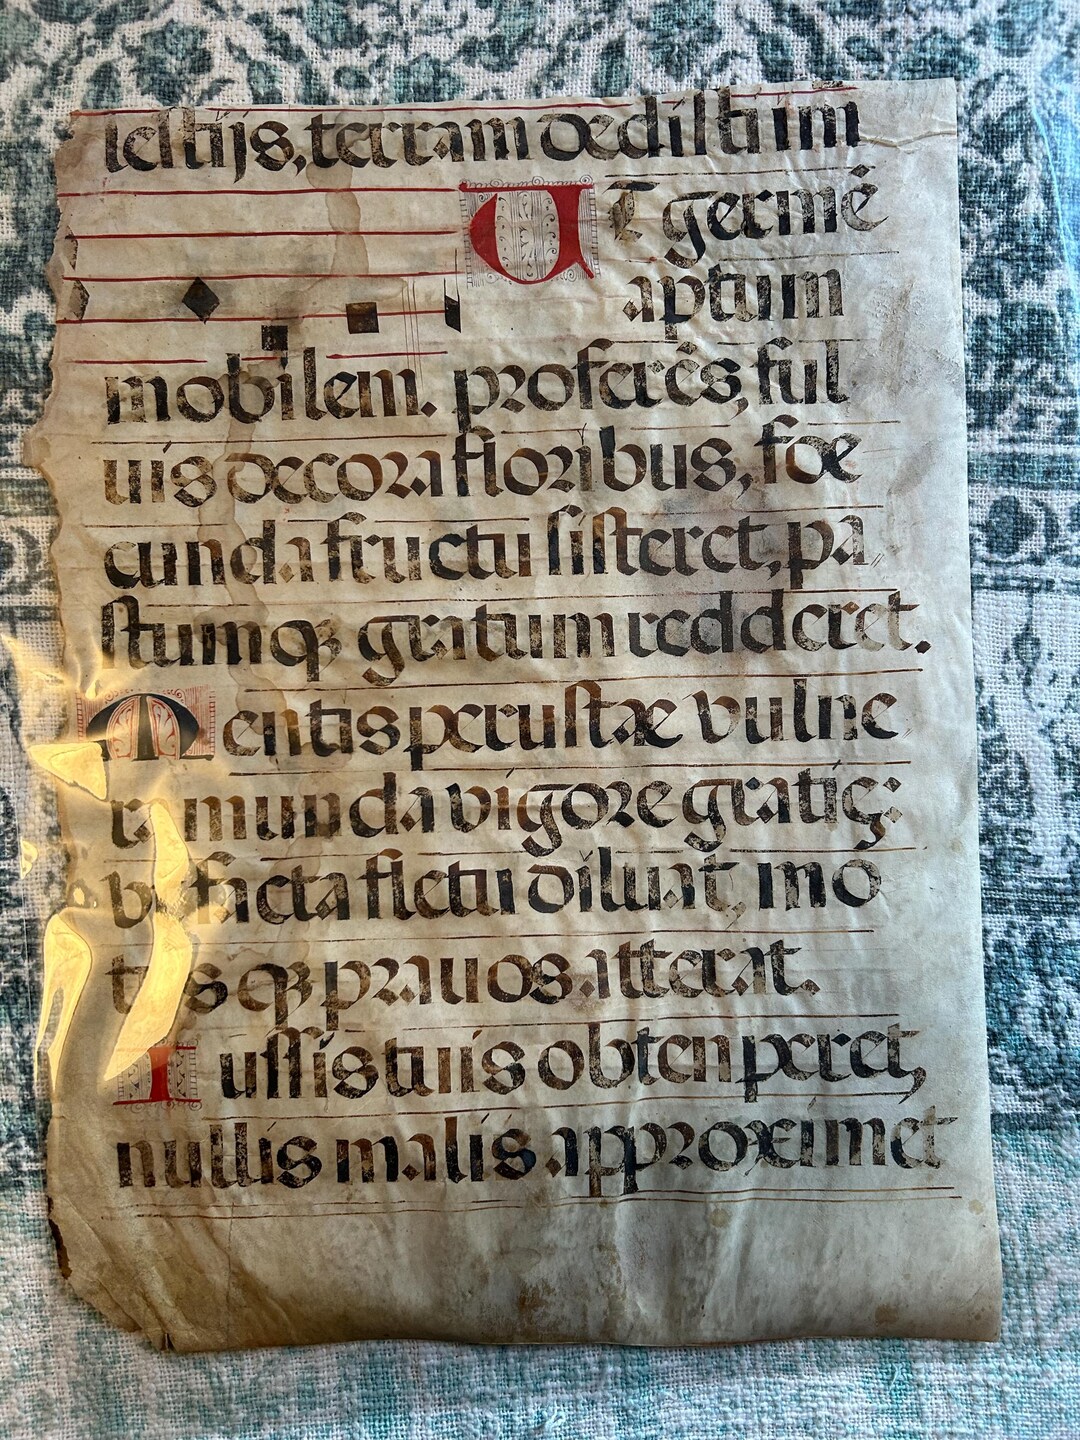 lestijs, terram dedisti im
Ut germē
aptum
mobilem. proferēs, ful
uis decora floribus, foe
cunda fructu sisteret, pa
stumqꝫ gratum redderet.
Mentis perustæ vulne
ra munda vigore gratię:
facta fletu diluat, mo
tusqꝫ prauos atterat.
Iussis tuis obtenperet,
nullis malis approximet